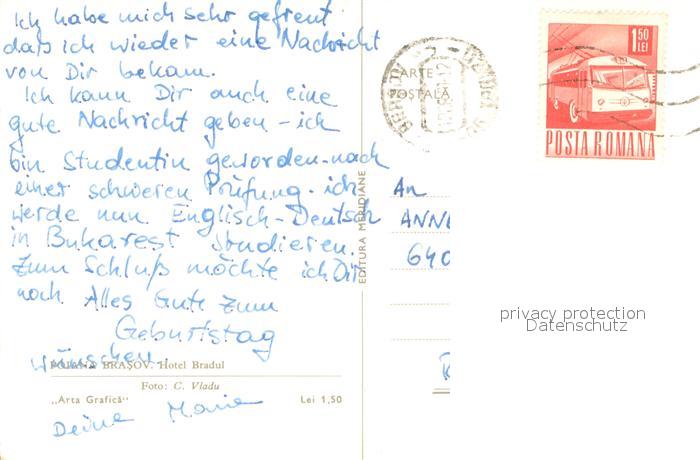 Ich habe mich sehr gefreut
daß ich wieder eine Nachricht
von Dir bekam.
Ich kann Dir auch eine
gute Nachricht geben - ich
bin Studentin geworden - nach
einer schweren Prüfung. ich
werde nun Englisch-Deutsch
in Bukarest studieren.
Zum Schluß möchte ich Dir
noch Alles Gute zum
Geburtstag
wünschen.
POIANA BRAȘOV. Hotel Bradul
Foto: C. Vladu
„Arta Grafică“ Lei 1,50
Deine Marie
EDITURA MERIDIANE
CARTE
POȘTALĂ
1 50
LEI
POSTA ROMANA
An
ANN
640
privacy protection
Datenschutz